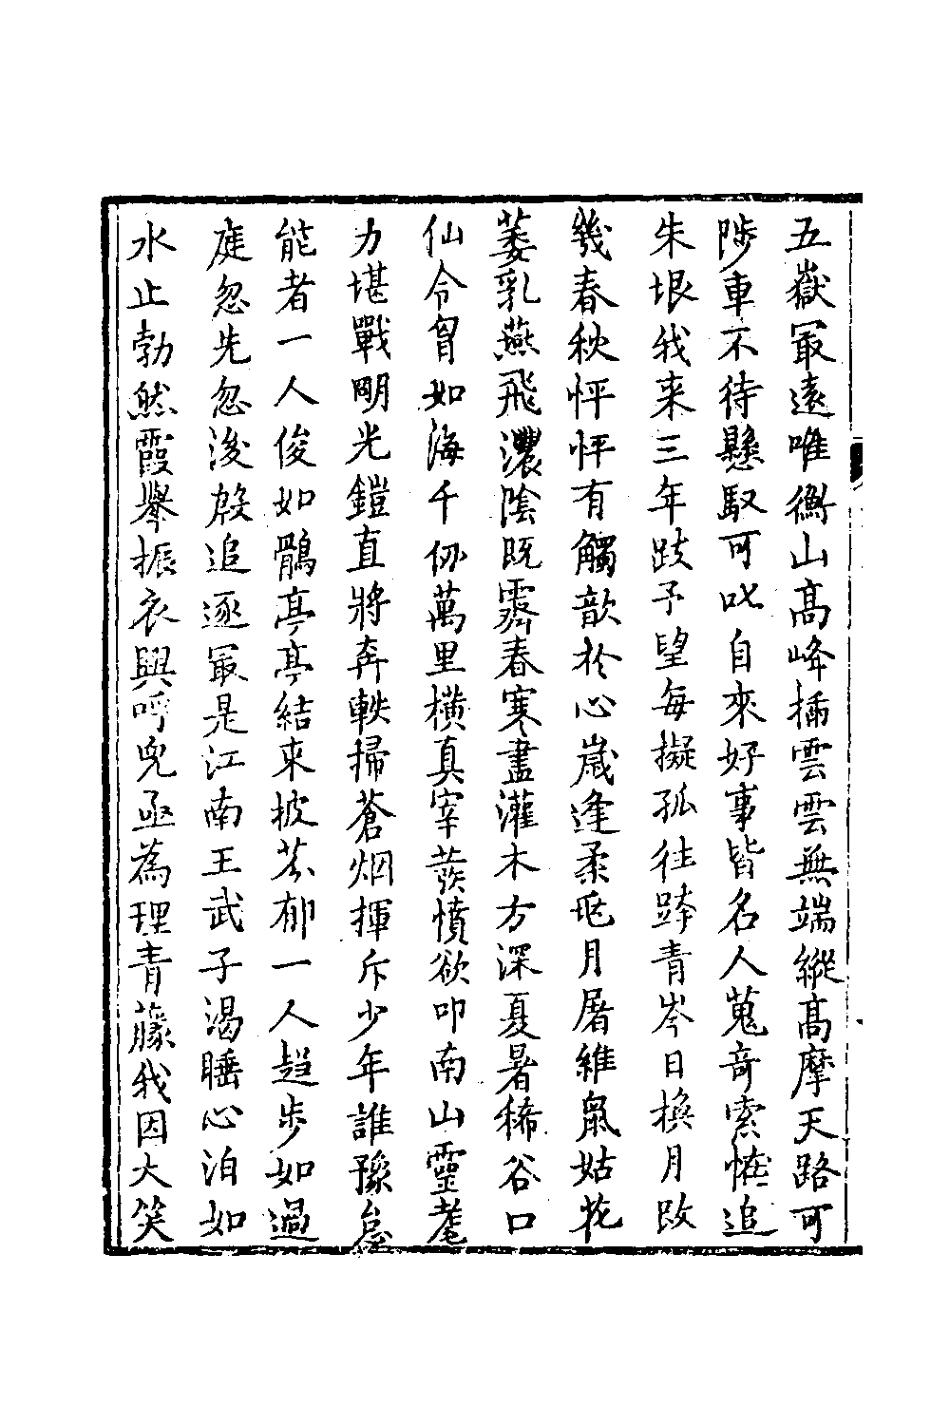 五嶽冣遠唯衡山高峰揷雲雲無端縱高摩天路可
陟車不待懸馭可叱自來好事皆名人蒐竒索恠追
朱垠我来三年跂予望每擬孤往跨青岑日換月改
幾春秋怦怦有觸歆於心歲逢柔兆月屠維鼠姑花
萎乳燕飛濃陰既霽春寒盡灌木方深夏暑稀谷口
仙令胷如海千仭萬里橫真宰蓑憤欲叩南山靈耄
力堪戰明光鎧直將奔軼掃蒼烟揮斥少年誰豫怠
能者一人俊如鶻亭亭結束披芬郁一人趋步如過
庭忽先忽後殷追逐冣是江南王武子渴睡心泊如
水止勃然霞舉振衣興呼兕亟為理青藤我因大笑